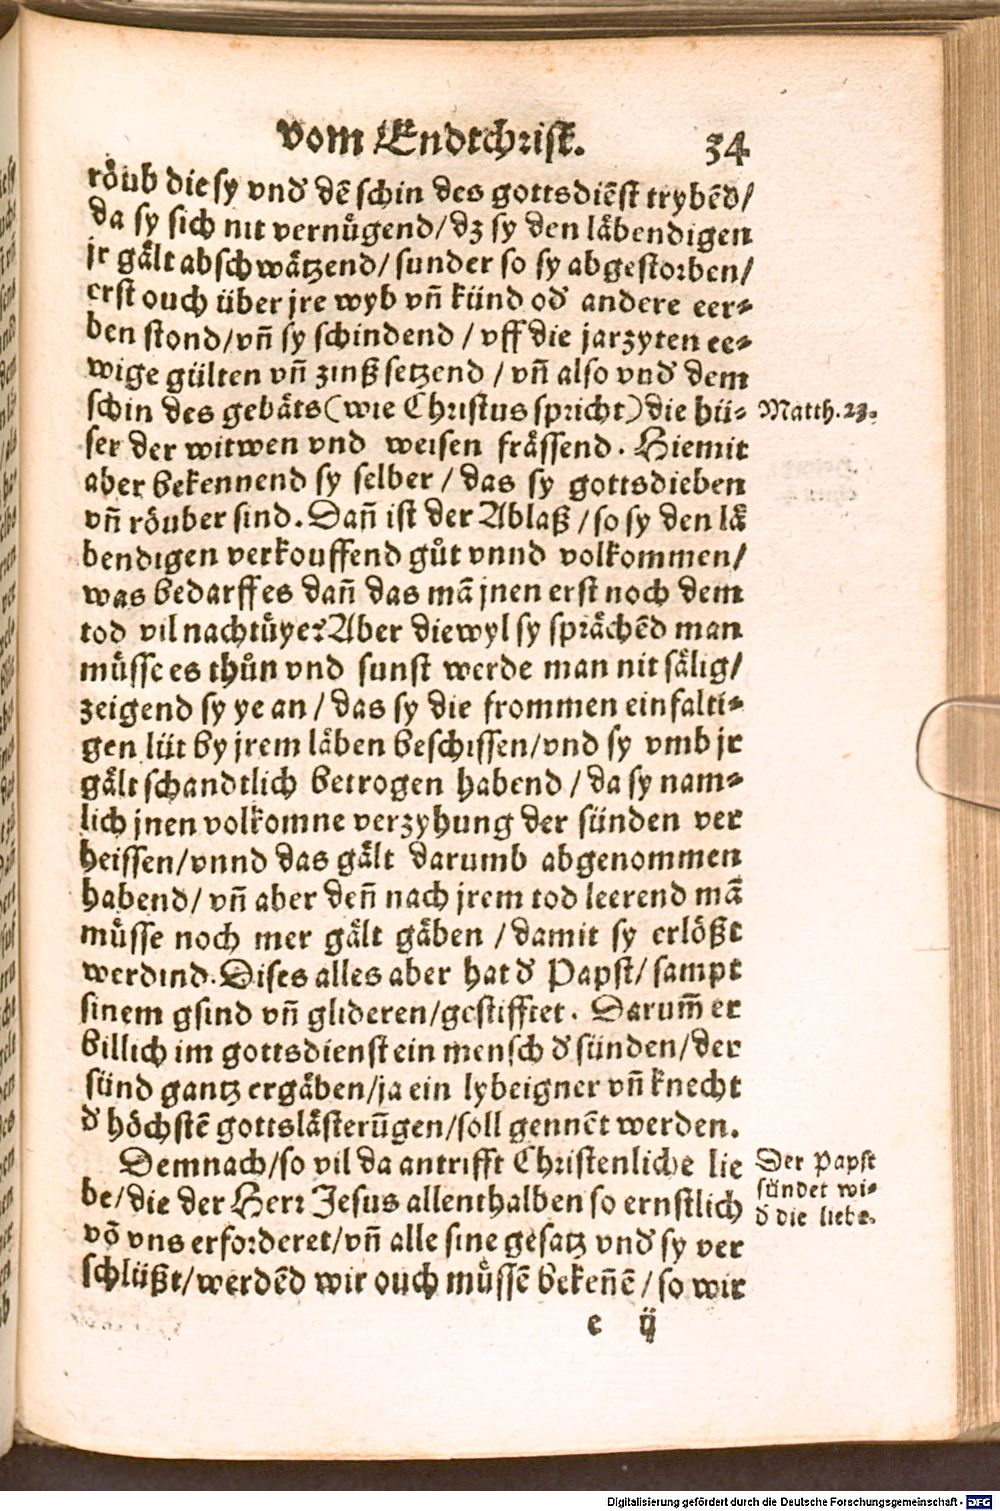 vom Endtchrist. 34
röub die sy vnd' dē schin des gottsdiēst trybēd/
da sy sich nit vernügend/dz sy den läbendigen
jr gält abschwätzend/ sunder so sy abgestorben/
erst ouch über jre wyb vñ künd od' andere eer⸗
ben stond/vñ sy schindend / vff die jarzyten ee⸗
wige gülten vñ zinß setzend / vñ also vnd' dem
schin des gebäts(wie Christus spricht)die hü⸗
Matth.23.
ser der witwen vnd weisen frässend. Hiemit
aber bekennend sy selber / das sy gottsdieben
vñ röuber sind. Dañ ist der Ablaß / so sy den lä
bendigen verkouffend gůt vnnd volkommen/
was bedarff es dañ das mā jnen erst noch dem
tod vil nachtüye? Aber diewyl sy sprächēd man
müsse es thůn vnd sunst werde man nit sälig/
zeigend sy ye an / das sy die frommen einfalti⸗
gen lüt by jrem läben beschissen/vnd sy vmb jr
gält schandtlich betrogen habend / da sy nam⸗
lich jnen volkomne verzyhung der sünden ver
heissen/vnnd das gält darumb abgenommen
habend/ vñ aber deñ nach jrem tod leerend mā
müsse noch mer gält gäben / damit sy erlößt
werdind. Dises alles aber hat d' Papst/ sampt
sinem gsind vñ glideren/gestifftet. Darum̄ er
billich im gottsdienst ein mensch d' sünden/der
sünd gantz ergäben/ja ein lybeigner vñ knecht
d' höchstē gottslästerūgen/soll gennēt werden.
Demnach/so vil da antrifft Christenliche lie
be/die der Herr Jesus allenthalben so ernstlich
vō vns erforderet/vñ alle sine gesatz vnd' sy ver
schlüßt/werdēd wir ouch müssē bekeñē / so wir
Der Papst
sündet wi⸗
d' die liebe.
e ij
Digitalisierung gefördert durch die Deutsche Forschungsgemeinschaft - DFG